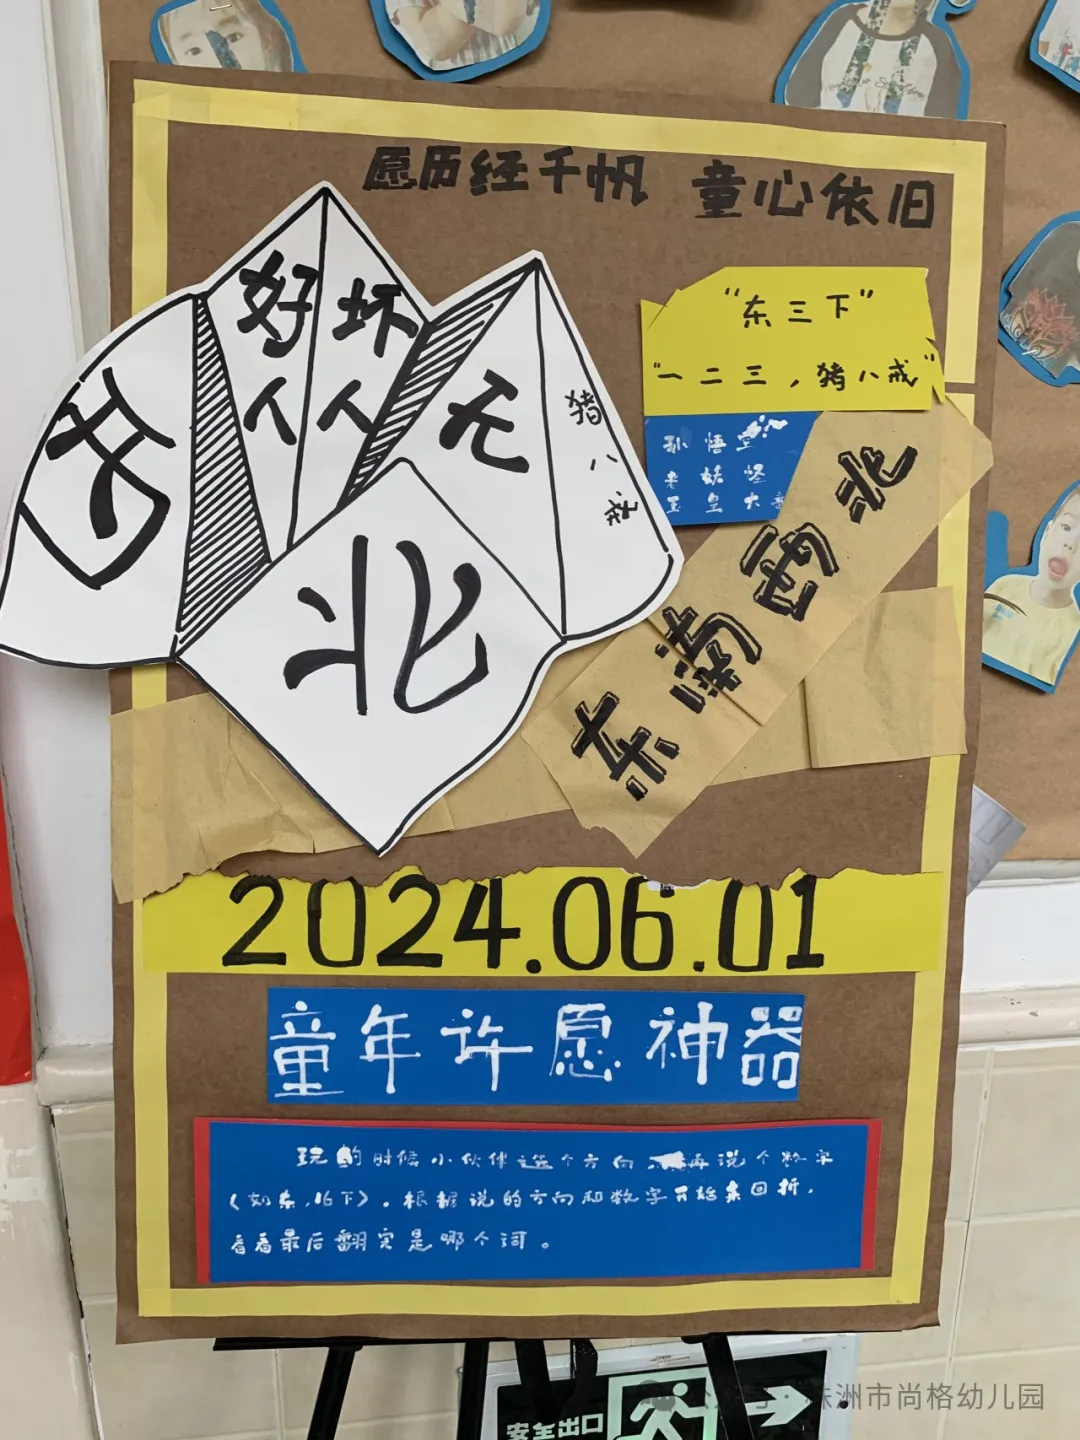 愿历经千帆 童心依旧
好人
坏人
西
无
猪八戒
北
“东三下”
“一二三，猪八戒”
孙悟空
老妖怪
玉皇大帝
东南西北
2024.06.01
童年许愿神器
玩的时候小伙伴选个方向 再说个数字
（如东，16下）。根据说的方向和数字开始来回折，
看看最后翻完是哪个词。
安全出口
株洲市尚格幼儿园